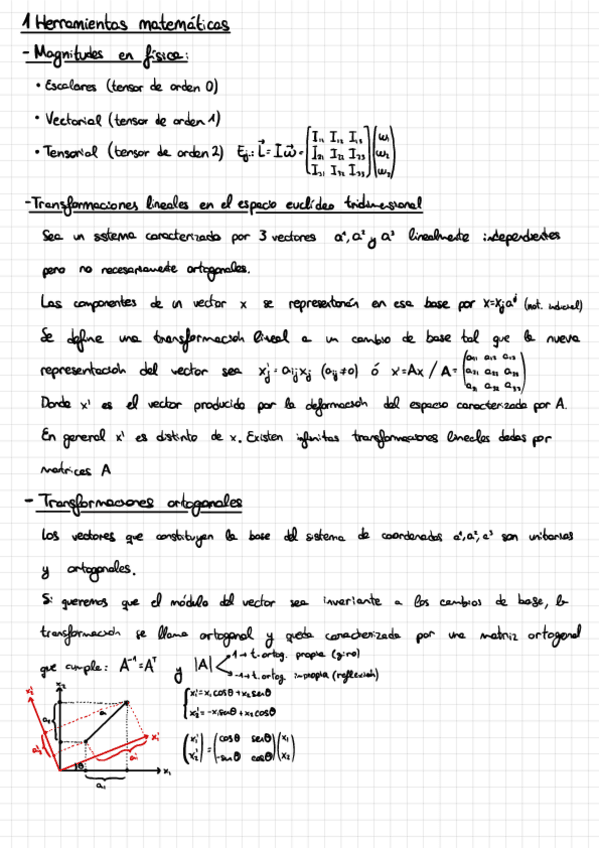 1 Herramientas matemáticas
- Magnitudes en física:
• Escalares (tensor de orden 0)
• Vectorial (tensor de orden 1)
• Tensorial (tensor de orden 2) Ej.: L⃗ = I ω⃗ = (I₁₁ I₁₂ I₁₃ / I₂₁ I₂₂ I₂₃ / I₃₁ I₃₂ I₃₃)(ω₁ / ω₂ / ω₃)
- Transformaciones lineales en el espacio euclídeo tridimensional
Sea un sistema caracterizado por 3 vectores a¹, a² y a³ linealmente independientes
pero no necesariamente ortogonales.
Las componentes de un vector x se representarán en esa base por x=xⱼaʲ (not. indicial)
Se define una transformación lineal a un cambio de base tal que la nueva
representación del vector sea x'ⱼ = aᵢⱼxⱼ (aᵢⱼ≠0) ó x'=Ax / A = (a₁₁ a₁₂ a₁₃ / a₂₁ a₂₂ a₂₃ / a₃₁ a₃₂ a₃₃)
Donde x' es el vector producido por la deformación del espacio caracterizada por A.
En general x' es distinto de x. Existen infinitas transformaciones lineales dadas por
matrices A
- Transformaciones ortogonales
Los vectores que constituyen la base del sistema de coordenadas a¹, a², a³ son unitarios
y ortogonales.
Si queremos que el módulo del vector sea invariante a los cambios de base, la
transformación se llama ortogonal y queda caracterizada por una matriz ortogonal
que cumple: A⁻¹=Aᵀ y |A|
1→t. ortog. propia (giro)
-1→t. ortog. impropia (reflexión)
x'₁=x₁cosθ+x₂senθ
x'₂=-x₁senθ+x₂cosθ
(x'₁ / x'₂) = (cosθ senθ / -senθ cosθ)(x₁ / x₂)
x'₂
x₂
a₂
a
x'₁
a'₂
a'₁
θ
x₁
a₁